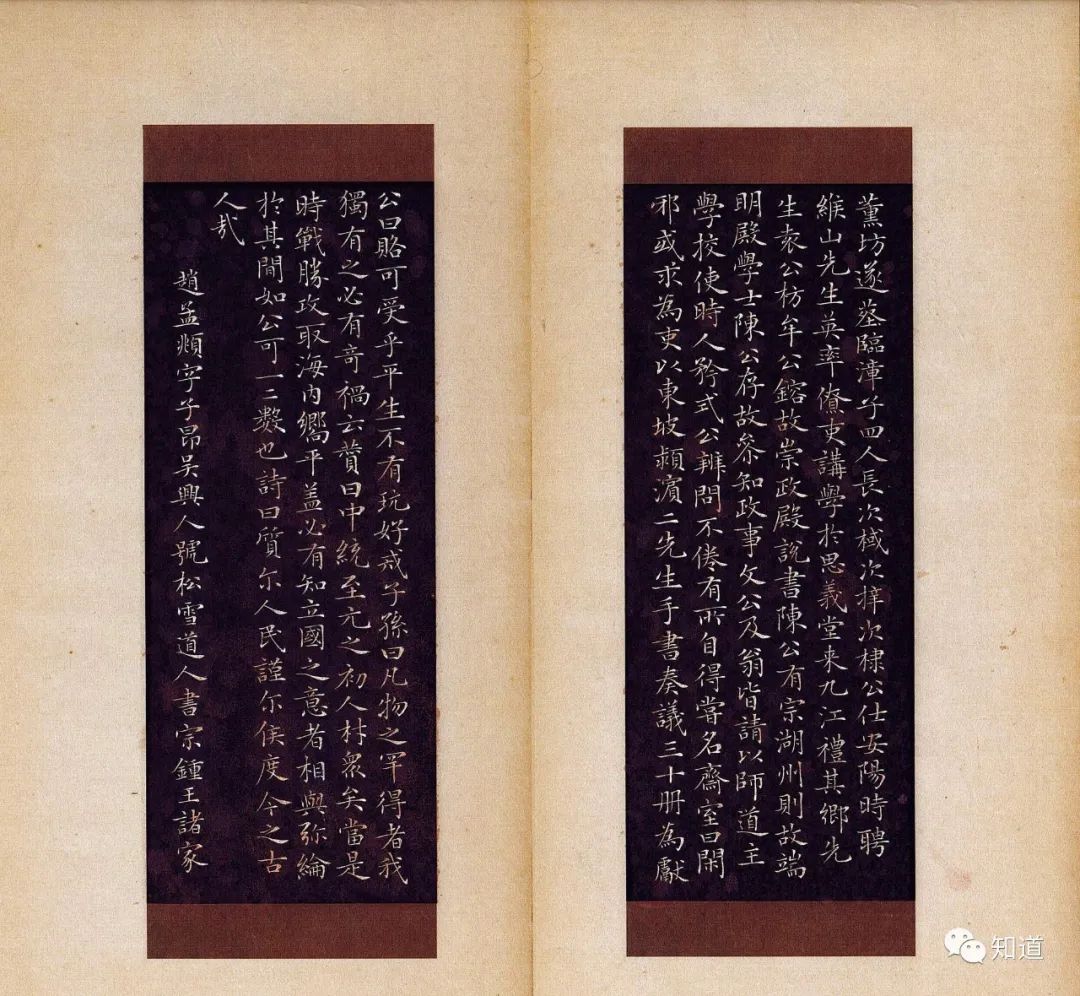 薰坊遂塟臨漳子四人長次棫次梓次棣公仕安陽時聘
維山先生英率僚吏講學於思義堂来九江禮其鄉先
生袁公枋牟公鎔故崇政殿說書陳公有宗湖州則故端
明殿學士陳公存故叅知政事文公及翁皆請以師道主
學校使時人矜式公辨問不倦有所自得嘗名齋室曰閑
邪或求為吏以東坡潁濱二先生手書奏議三十冊為獻
公曰賂可受乎平生不有玩好戒子孫曰凡物之罕得者我
獨有之必有奇禍云贊曰中統至元之初人材衆矣當是
時戰勝攻取海內嚮平盖必有知立國之意者相與弥綸
於其間如公可一二數也詩曰質尔人民謹尔侯度今之古
人哉
趙孟頫字子昂吳興人號松雪道人書宗鍾王諸家
知道